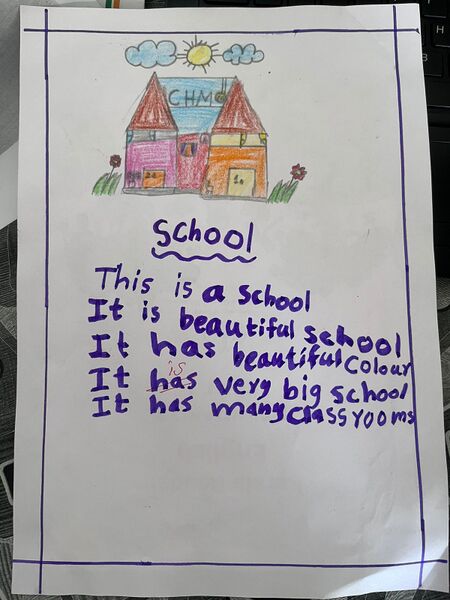 CHM
School
This is a school
It is beautiful school
It has beautiful Colour
is
It has very big school
It has many classrooms